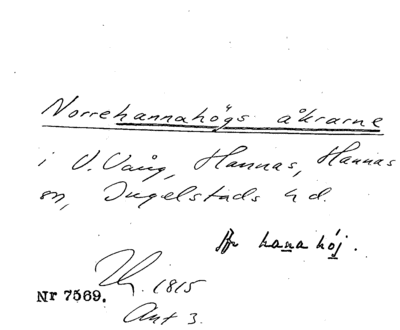 Norrehannahögs åkrarne
i V. Vång, Hannas, Hannas
sn, Ingelstads hd.
hanahöj.
1815
Nr 7569.
Ant 3.